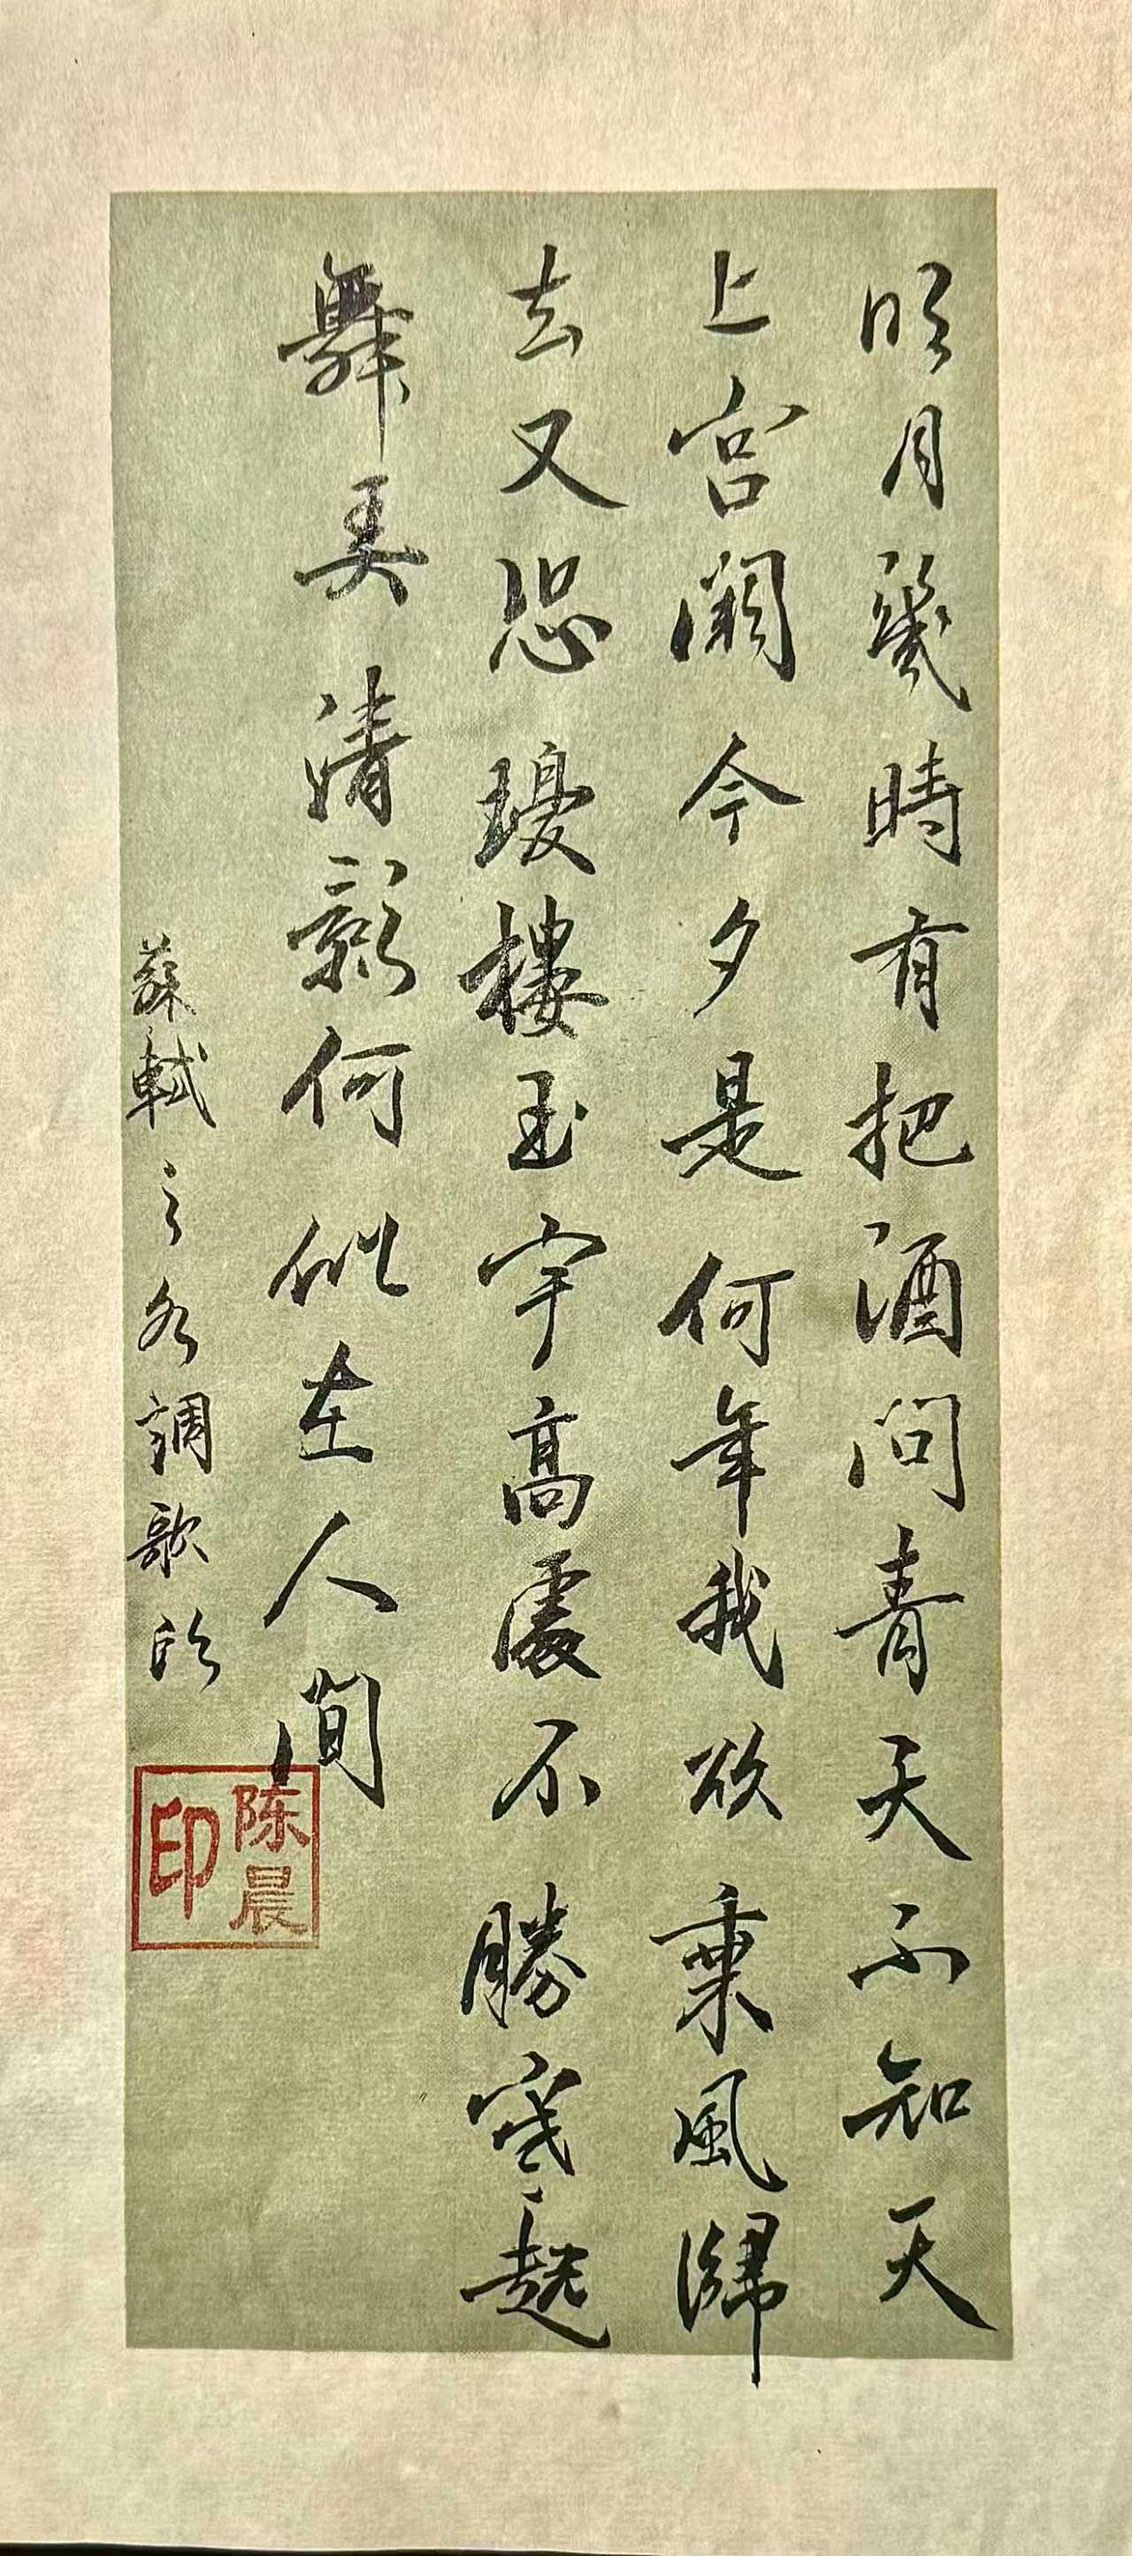 明月幾時有把酒問青天不知天
上宮闕今夕是何年我欲乘風歸
去又恐瓊樓玉宇高處不勝寒起
舞弄清影何似在人間
蘇軾之水調歌的
陈晨
印